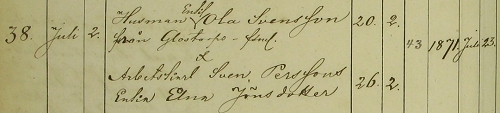 38. Juli 2. Husman Enkl. Ola Svensson 20. 2.
från Glostorps förs.
& 43 1871. Juli 23.
Arbetskarl Sven Perssons
Enka Elna Jönsdotter 26. 2.